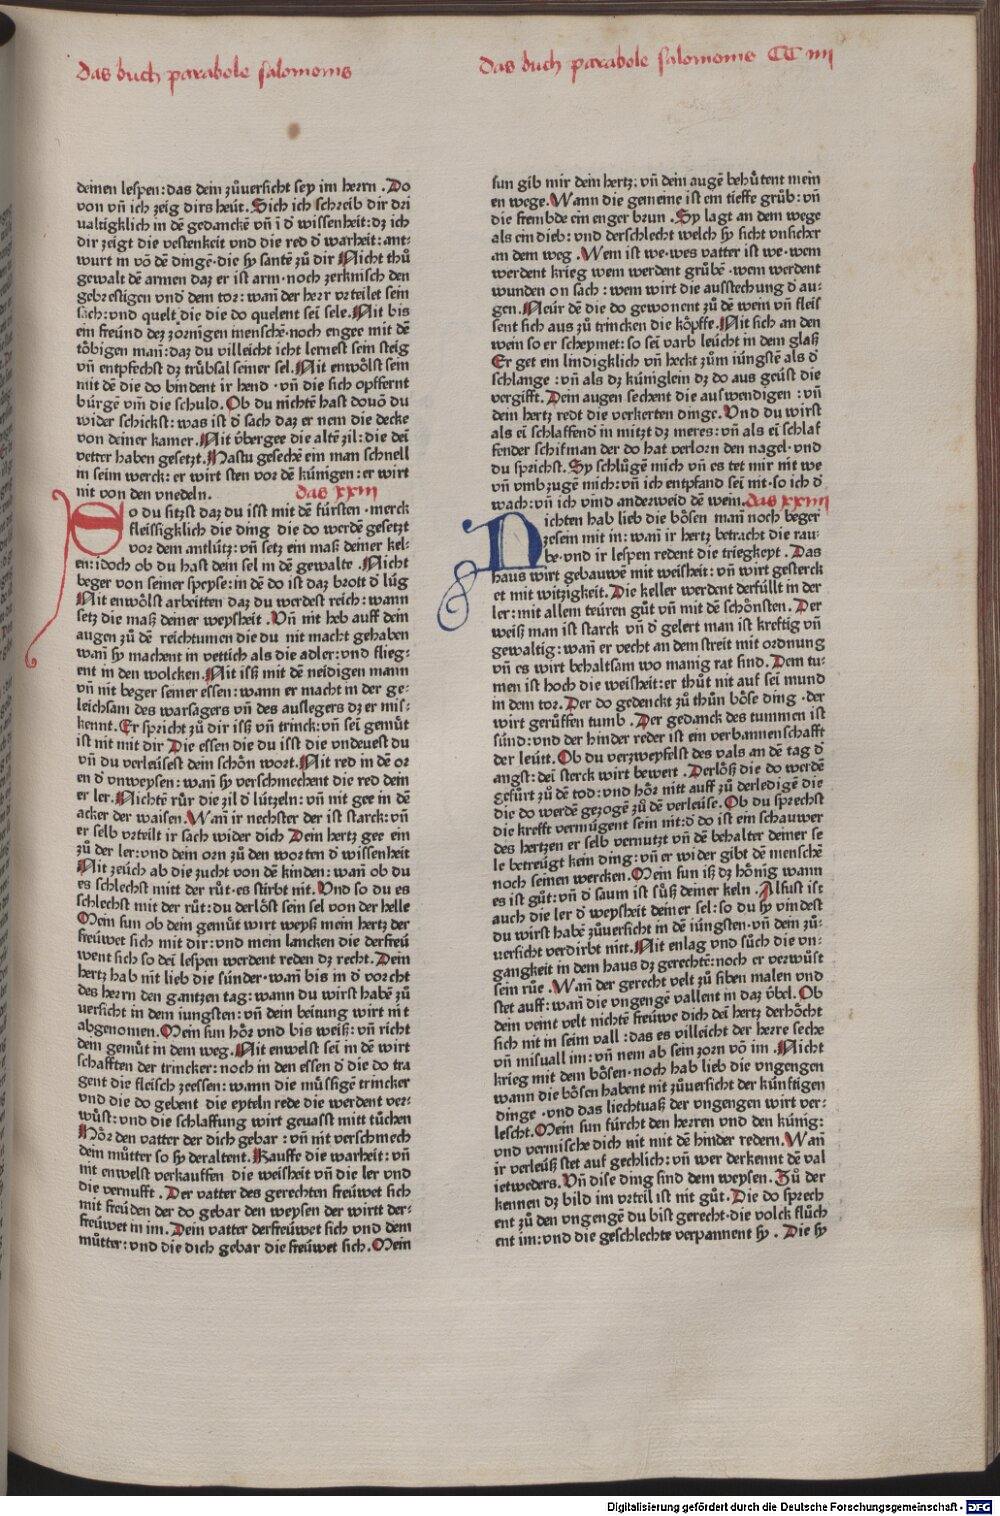 das buch parabole salomonis
das buch parabole salomonis CC iiij
deinen lespen: das dein zůuersicht sey im herrn . Do
von vñ ich zeig dirs heůt. Sich ich schreib dir dri
ualtigklich in dē gedanckē vñ i d̓ wissenheit: dz ich
dir zeigt die vestenkeit vnd die red d̓ warheit: ant⸗
wurt in võ dē dingē· die sy santē zů dir Nicht thů
gewalt dē armen daz er ist arm· noch zerknisch den
gebrestigen vnd̓ dem tor: wañ der herr vrteilet sein
sach: vnd quelt die die do quelent sei sele. Nit bis
ein freünd dez zornigen menschē· noch engee mit dē
tôbigen mañ: daz du villeicht icht lernest sein steig
vñ entpfechst dz trůbsal seiner sel. Nit enwôlst sein
mit dē die do bindent ir hend · vñ die sich opffernt
búrgē vm̃ die schuld. Ob du nichtē hast douō du
wider schickst: was ist d̓ sach daz er nem die decke
von deiner kamer. Nit v̓bergee die altē zil: die dei
vetter haben gesetzt. Hastu gesechē ein man schnell
in seim werck: er wirt sten vor dē kúnigen: er wirt
nit von den vnedeln. das xxiij
So du sitzst daz du isst mit dē fúrsten · merck
fleissigklich die ding die do werdē gesetzt
vor dem antlútz: vñ setz ein maß deiner kel⸗
en: idoch ob du hast dein sel in dē gewalte . Nicht
beger von seiner speyse: in dē do ist daz brott d̓ lúg
Nit enwôlst arbeitten daz du werdest reich: wann
setz die maß deiner weysheit . Vñ nit heb auff dein
augen zů dē reichtumen die du nit macht gehaben
wañ sy machent in vettich als die adler: vnd flieg⸗
ent in den wolcken. Nit isß mit dē neidigen mann
vñ nit beger seiner essen: wann er macht in der ge⸗
leichsam des warsagers vñ des auslegers dz er mis⸗
kennt. Er spricht zů dir isß vñ trinck: vñ sei gemůt
ist nit mit dir Die essen die du isst die vndeuest du
vñ du verleúsest dein schôn wort. Nit red in dē or
en d̓ vnweysen: wañ sy verschmechent die red dein
er ler. Nichtē růr die zil d̓ lútzeln: vñ nit gee in dē
acker der waisen. Wañ ir nechster der ist starck: vñ
er selb vrteilt ir sach wider dich Dein hertz gee ein
zů der ler: vnd dein orn zů den worten d̓ wissenheit
Nit zeúch ab die zucht von dē kinden: wañ ob du
es schlechst mitt der růt · es stirbt nit. Vnd so du es
schlechst mit der růt: du derlôst sein sel von der helle
Mein sun ob dein gemůt wirt weyß mein hertz der
freúwet sich mit dir: vnd mein lancken die derfreú
went sich so dei lespen werdent reden dz recht. Dein
hertz hab nit lieb die súnder · wañ bis in d̓ vorcht
des herrn den gantzen tag: wann du wirst habē zů
uersicht in dem iungsten: vñ dein beitung wirt nit
abgenomen. Mein sun hôr vnd bis weiß: vñ richt
dem gemůt in dem weg. Nit enwelst sei in dē wirt
schafften der trincker: noch in den essen d̓ die do tra
gent die fleisch zeessen: wann die mússigē trincker
vnd die do gebent die eyteln rede die werdent ver⸗
wůst: vnd die schlaffung wirt geuasst mitt tůchen
Hôr den vatter der dich gebar : vñ nit verschmech
dein můtter so sy deraltent. Kauffe die warheit: vñ
nit enwelst verkauffen die weisheit vñ die ler vnd
die vernufft . Der vatter des gerechten freúwet sich
mit freúden der do gebar den weysen der wirtt der⸗
freúwet in im. Dein vatter derfreúwet sich vnd dem
můtter: vnd die dich gebar die freúwet sich. Mein
sun gib mir dein hertz: vñ dein augē behůtent mein
en wege. Wann die gemeine ist ein tieffe grůb: vñ
die frembde ein enger brun . Sy lagt an dem wege
als ein dieb: vnd derschlecht welch sy sicht vnsicher
an dem weg . Wem ist we · wes vatter ist we · wem
werdent krieg wem werdent grůbē · wem werdent
wunden on sach : wem wirt die ausstechung d̓ au⸗
gen. Neúr dē die do gewonent zů dē wein vñ fleis
sent sich aus zů trincken die kôpffe. Nit sich an den
wein so er scheymet: so sei varb leúcht in dem glaß
Er get ein lindigklich vñ heckt zům iúngstē als d̓
schlange : vñ als dz kúniglein dz do aus geúst die
vergifft. Dein augen sechent die auswendigen : vñ
dein hertz redt die verkerten dinge. Vnd du wirst
als ei schlaffend in mitzt dz meres: vñ als ei schlaf
fender schifman der do hat verlorn den nagel · vnd
du sprichst. Sy schlůgē mich vñ es tet mir nit we
vñ vmbzugē mich: vñ ich entpfand sei nit · so ich d̓
wach: vñ ich vind anderweid dē wein. das xxiiij
Nichten hab lieb die bôsen mañ noch beger
zesein mit in: wañ ir hertz betracht die rau⸗
be · vnd ir lespen redent die triegkeyt . Das
haus wirt gebauwē mit weisheit: vñ wirt gesterck
et mit witzigkeit. Die keller werdent derfúllt in der
ler: mit allem teúren gůt vñ mit dē schônsten. Der
weiß man ist starck vñ d̓ gelert man ist kreftig vñ
gewaltig: wañ er vecht an dem streit mit ordnung
vñ es wirt behaltsam wo manig rat sind. Dem tu⸗
men ist hoch die weisheit: er thůt nit auf sei mund
in dem tor. Der do gedenckt zů thůn bôse ding · der
wirt gerůffen tumb . Der gedanck des tummen ist
súnd: vnd der hinder reder ist ein verbannenschafft
der leútt. Ob du verzweyfelst des vals an dē tag d̓
angst: dei sterck wirt bewert . Derlôß die do werdē
gefúrt zů dē tod: vnd hôr nitt auff zů derledigē die
die do werdē gezogē zů dē verleúse. Ob du sprechst
die krefft vermúgent sein nit: d̓ do ist ein schauwer
des hertzen er selb vernutzt vñ dē behalter deiner se
le betreúgt kein ding: vñ er wider gibt dē menschē
noch seinen wercken. Mein sun iß dz hônig wann
es ist gůt: vñ d̓ saum ist sůß deiner keln . Alsust ist
auch die ler d̓ weysheit deiner sel: so du sy vindest
du wirst habē zůuersicht in dē iúngsten · vñ dein zů⸗
uersicht verdirbt nitt. Nit enlag vnd sůch die vn⸗
gangkeit in dem haus dz gerechtē: noch er verwúst
sein růe . Wañ der gerecht velt zů siben malen vnd
stet auff: wañ die vngengē vallent in daz v̓bel. Ob
dein veint velt nichtē freúwe dich dei hertz derhôcht
sich nit in seim vall : das es villeicht der herre seche
vñ misuall im: vñ nem ab sein zorn võ im . Nicht
krieg mit dem bôsen · noch hab lieb die vngengen
wann die bôsen habent nit zůuersicht der kúnftigen
dinge · vnd das liechtuaß der vngengen wirt ver⸗
lescht. Mein sun fúrcht den herren vnd den kúnig:
vnd vermische dich nit mit dē hinder redern. Wañ
ir verleúß stet auf gechlich: vñ wer derkennt dē val
ietweders. Vñ dise ding sind dem weysen. Zů der
kennen dz bild im vrteil ist nit gůt. Die do sprech
ent zů den vngengē du bist gerecht · die volck flůch
ent im: vnd die geschlechte verpannent sy . Die sy
Digitalisierung gefördert durch die Deutsche Forschungsgemeinschaft - DFG